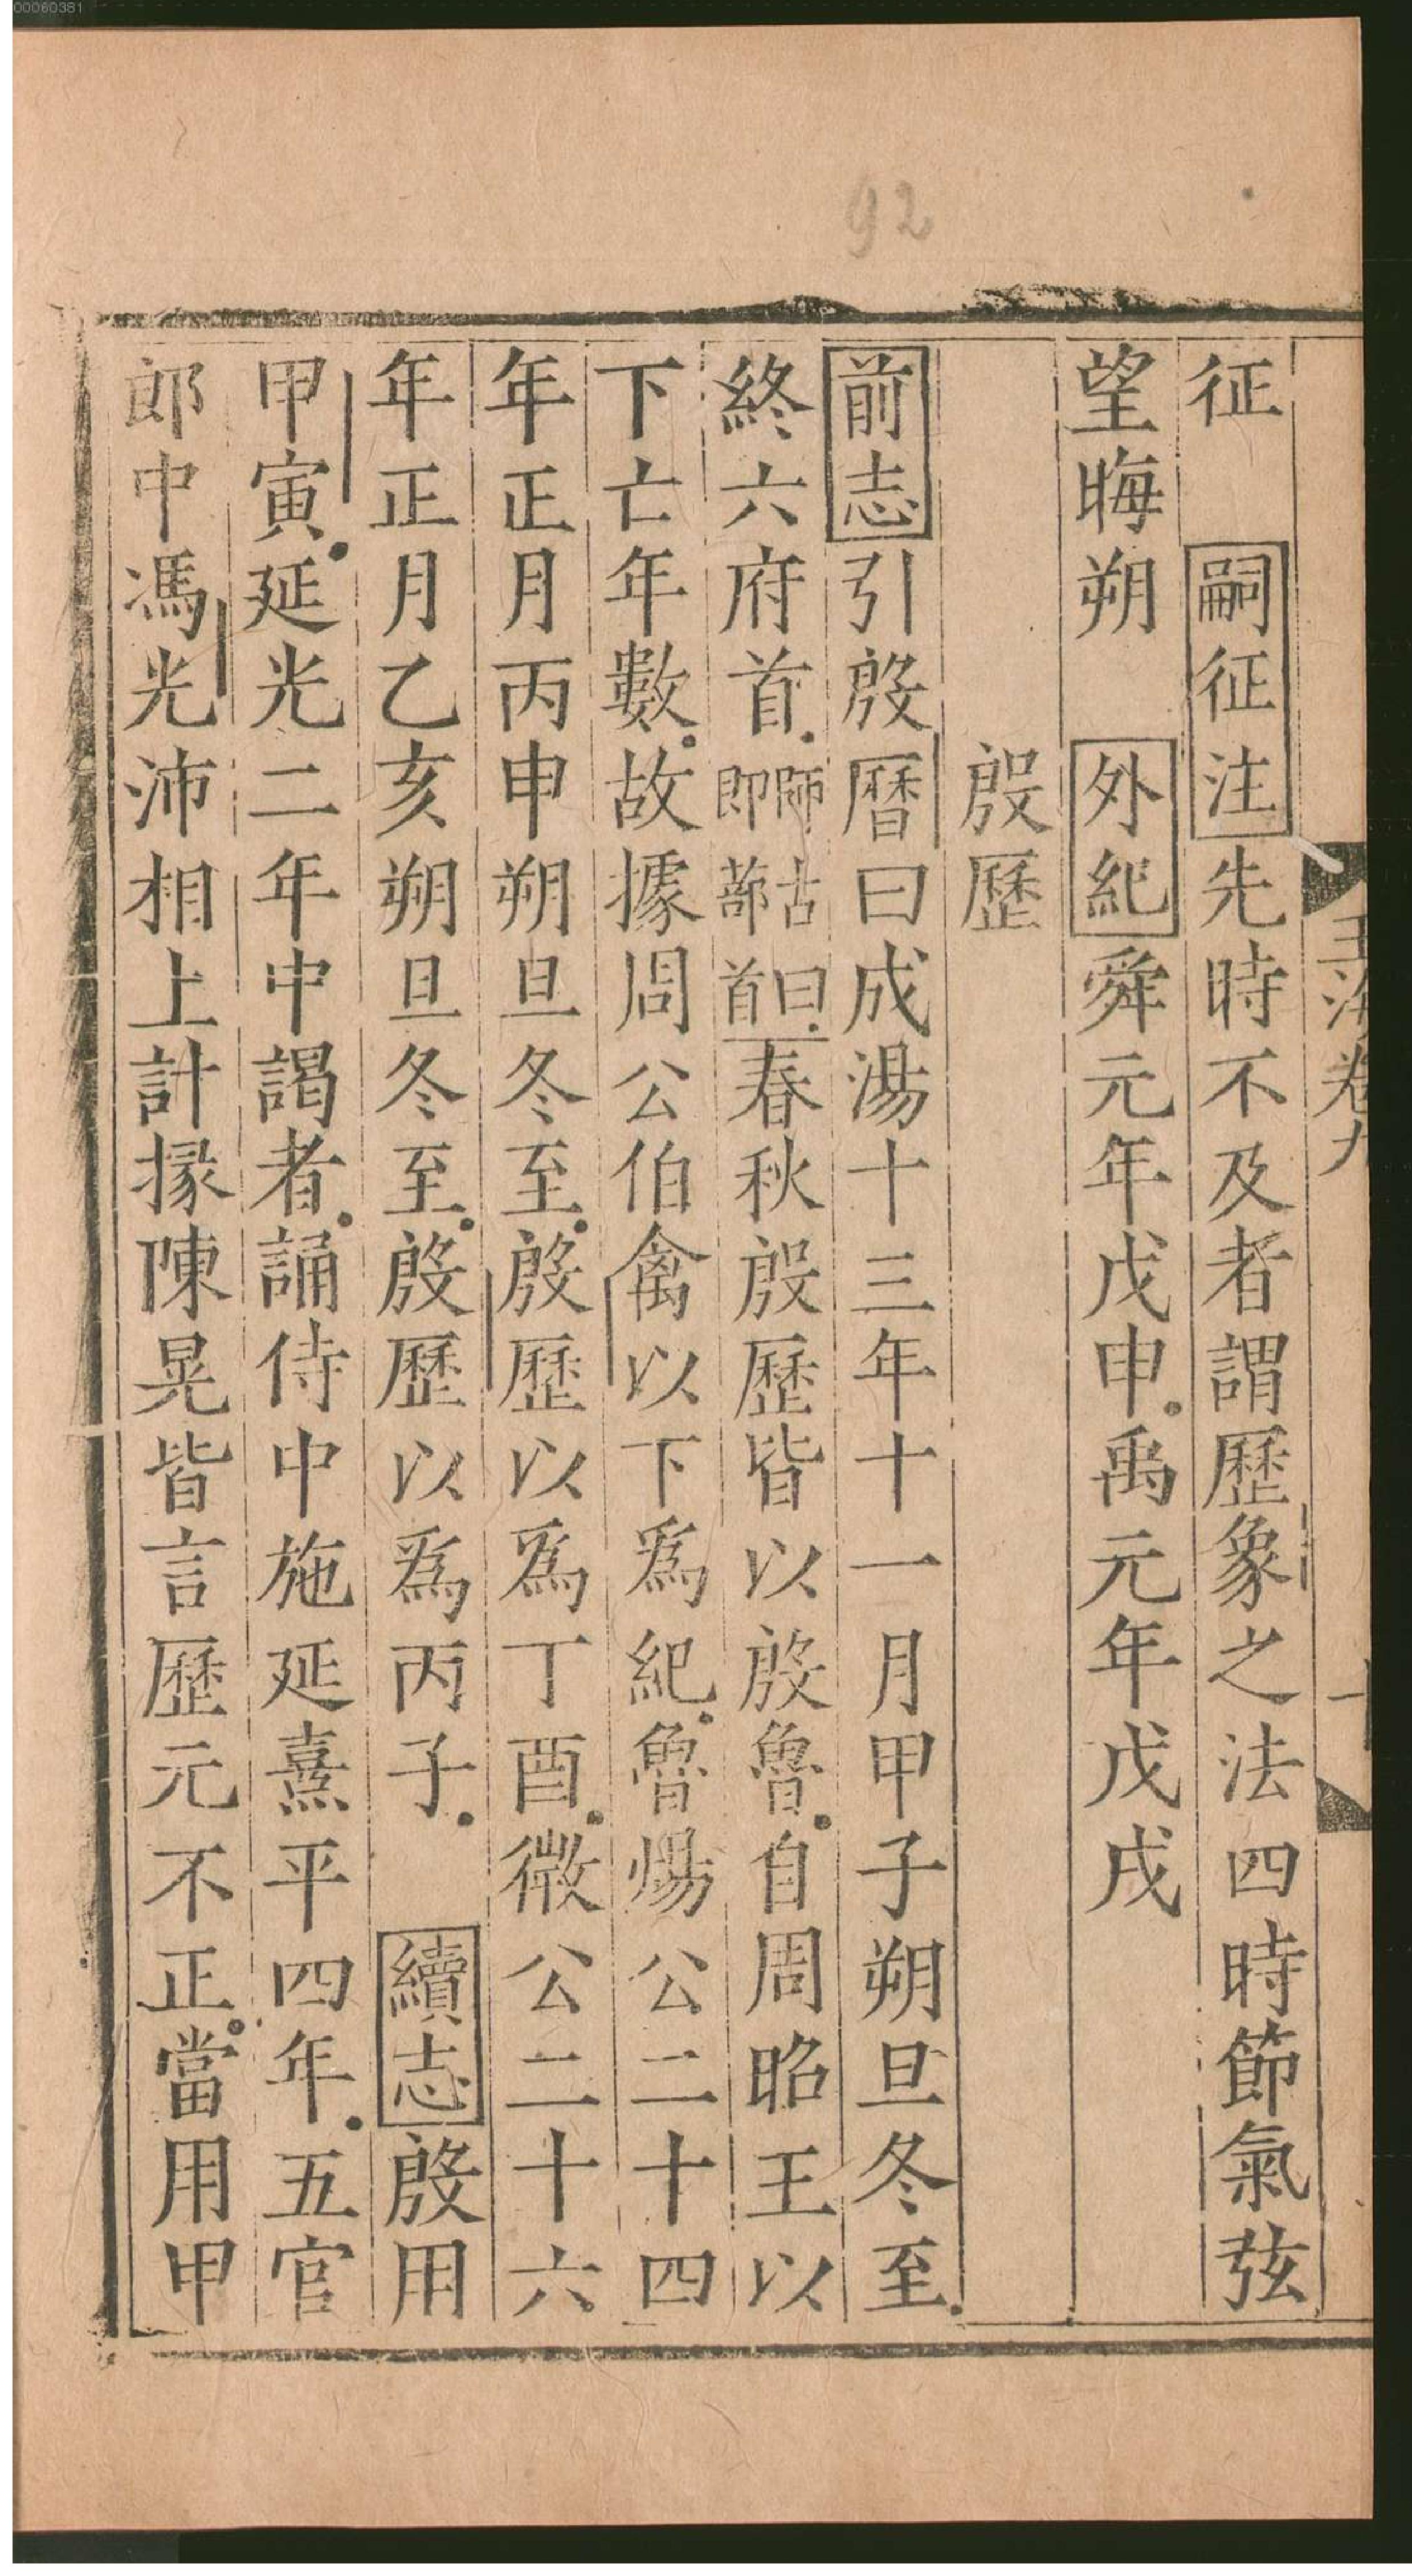 00060381
92
玉海卷九
征　嗣征注先時不及者謂歷象之法四時節氣弦
望晦朔　外紀舜元年戊申禹元年戊戌
殷歷
前志引殷曆曰成湯十三年十一月甲子朔旦冬至
終六府首師古曰即蔀首春秋殷歷皆以殷魯自周昭王以
下亡年數故據周公伯禽以下爲紀魯煬公二十四
年正月丙申朔旦冬至殷歷以爲丁酉微公二十六
年正月乙亥朔旦冬至殷歷以爲丙子　續志殷用
甲寅延光二年中謁者誦侍中施延熹平四年五官
郎中馮光沛相上計掾陳晃皆言歷元不正當用甲